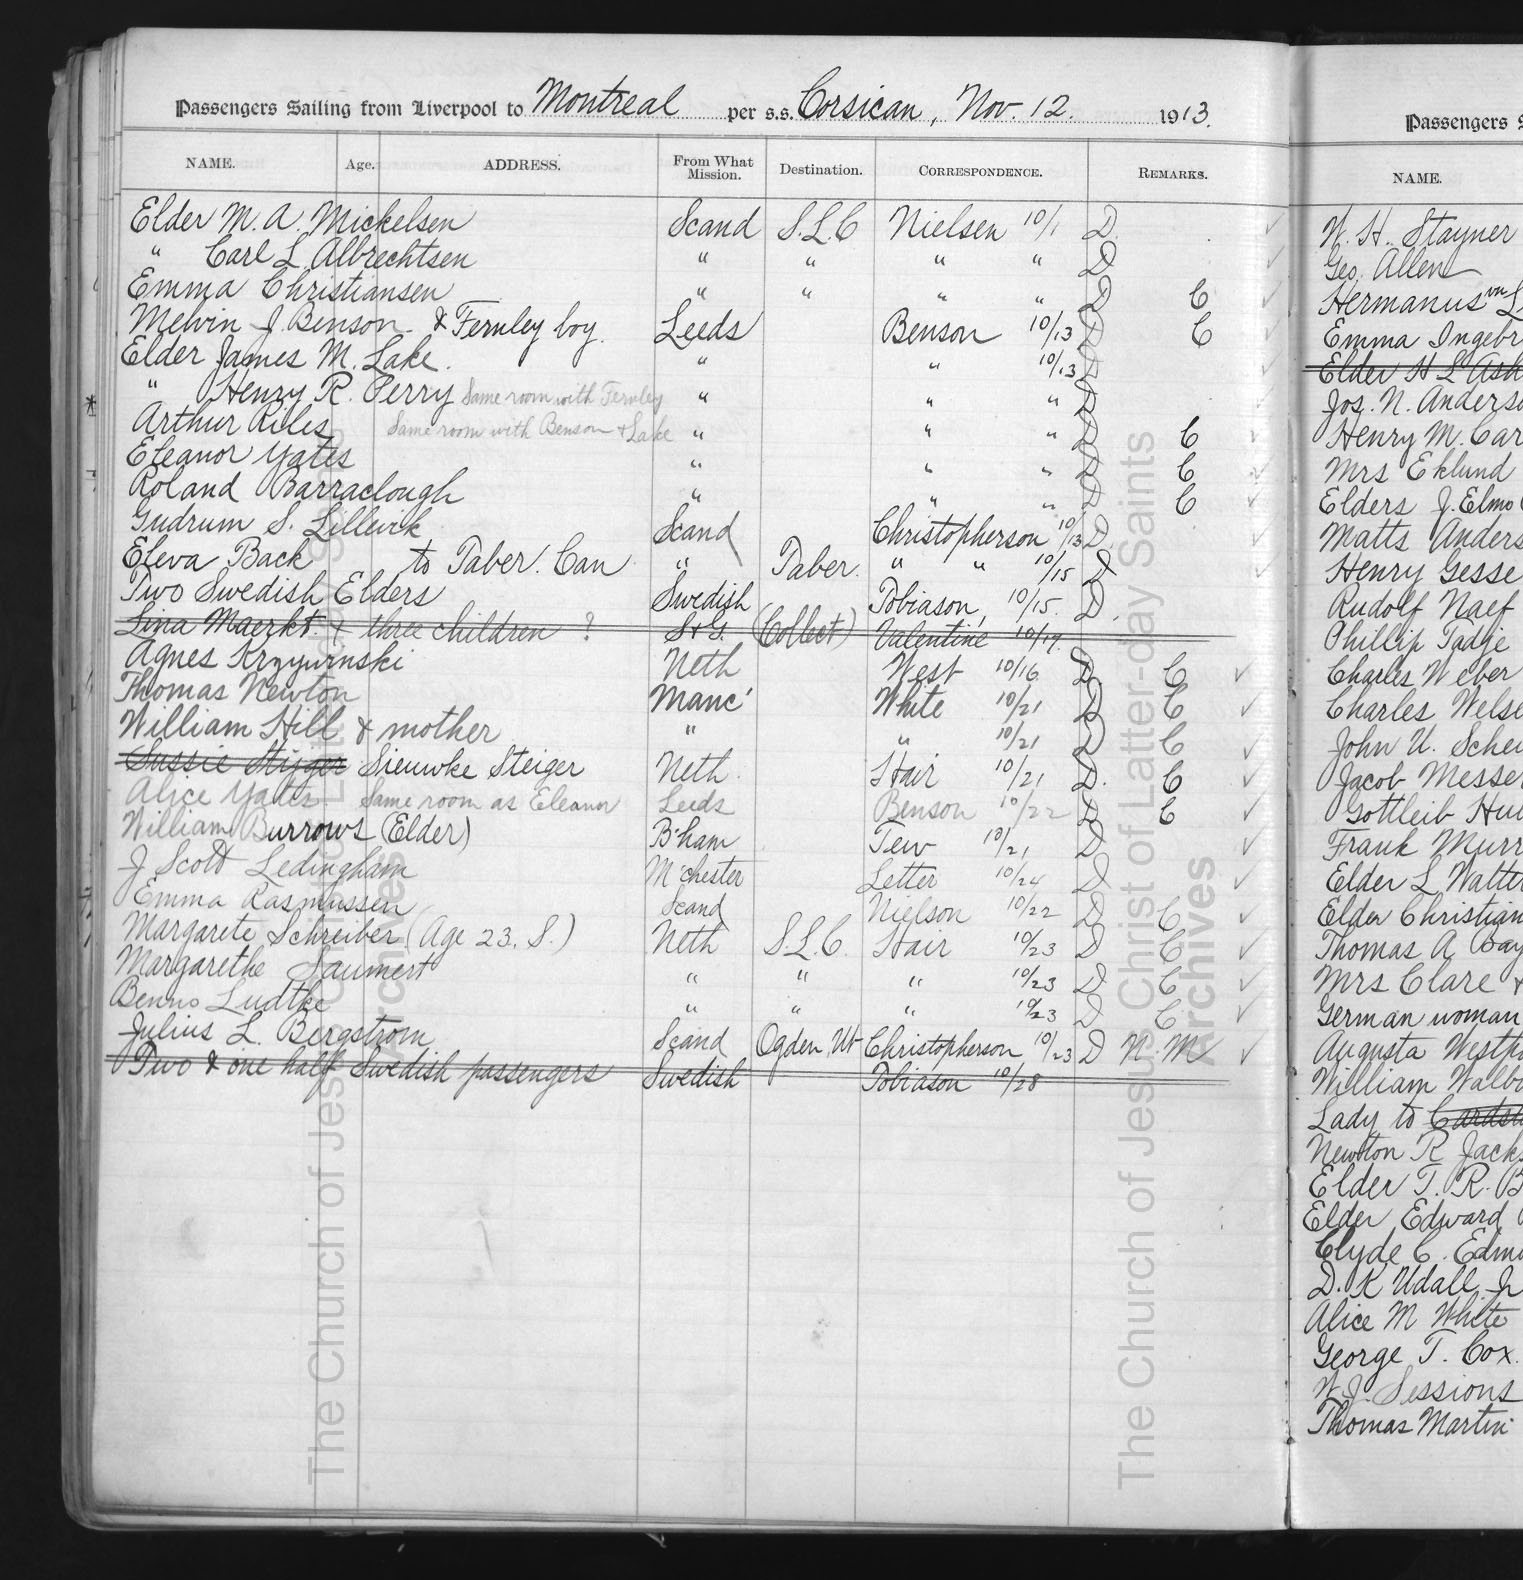 Passengers Sailing from Liverpool to Montreal per s.s. Corsican, Nov. 12. 1913.
NAME. Age. ADDRESS. From What Mission. Destination. CORRESPONDENCE. REMARKS.
Elder M. A. Mickelsen Scand S.L.C Nielsen 10/1 D.
" Carl L. Albrechtsen " " " " D
Emma Christiansen " " " " D C
Melvin J. Benson & Fernley boy. Leeds Benson 10/13 D C
Elder James M. Lake. " " 10/13 D
" Henry R. Perry Same room with Fernley " " " D
Arthur Riles Same room with Benson & Lake " " " D C
Eleanor Yates " " " D C
Roland Barraclough " " " D C
Gudrum S. Lillevik Scand Christopherson 10/13 D.
Eleva Back to Taber. Can " Taber. " " 10/15 D
Two Swedish Elders Swedish Tobiason, 10/15. D.
Lina Maerkt. & three children ? S & G. (Collect) Valentine 10/17.
Agnes Krzywnski Neth West 10/16 D C
Thomas Newton Manc' White 10/21 D C
William Hill & mother " " 10/21 D C
Sussie Stijger Sieuwke Steiger Neth. Hair 10/21 D. C
Alice Yates. Same room as Eleanor Leeds Benson 10/22 D C
William Burrows (Elder) B'ham Tew 10/21 D
J Scott Ledingham M'chester Letter 10/24 D
Emma Rasmussen Scand Nielson 10/22 D C
Margarete Schreiber (Age 23. S.) Neth S.L.C. Hair 10/23 D C
Margarethe Saumert " " " 10/23 D C
Benno Ludtke " " " 10/23 D C
Julius L. Bergstrom Scand Ogden, Ut Christopherson 10/23 D N. M
Two & one half Swedish passengers Swedish Tobiason 10/28
Passengers
NAME.
W. H. Stayner
Geo. Allen
Hermanus vn
Emma
Elder H L
Jos. N.
Henry M.
Mrs Eklund
Elders J. Elmo
Matts
Henry Gesse
Rudolf Naef
Phillip Tadje
Charles Weber
Charles
John U.
Jacob
Gottleib
Frank
Elder L
Elder Christian
Thomas A
Mrs Clare &
German woman
Augusta
William
Lady to
Newton R
Elder T. R.
Elder Edward
Clyde C.
D. K Udall Jr
Alice M White
George T. Cox.
W. J. Sessions
Thomas Martin
The Church of Jesus Christ of Latter-day Saints
Archives
The Church of Jesus Christ of Latter-day Saints
Archives